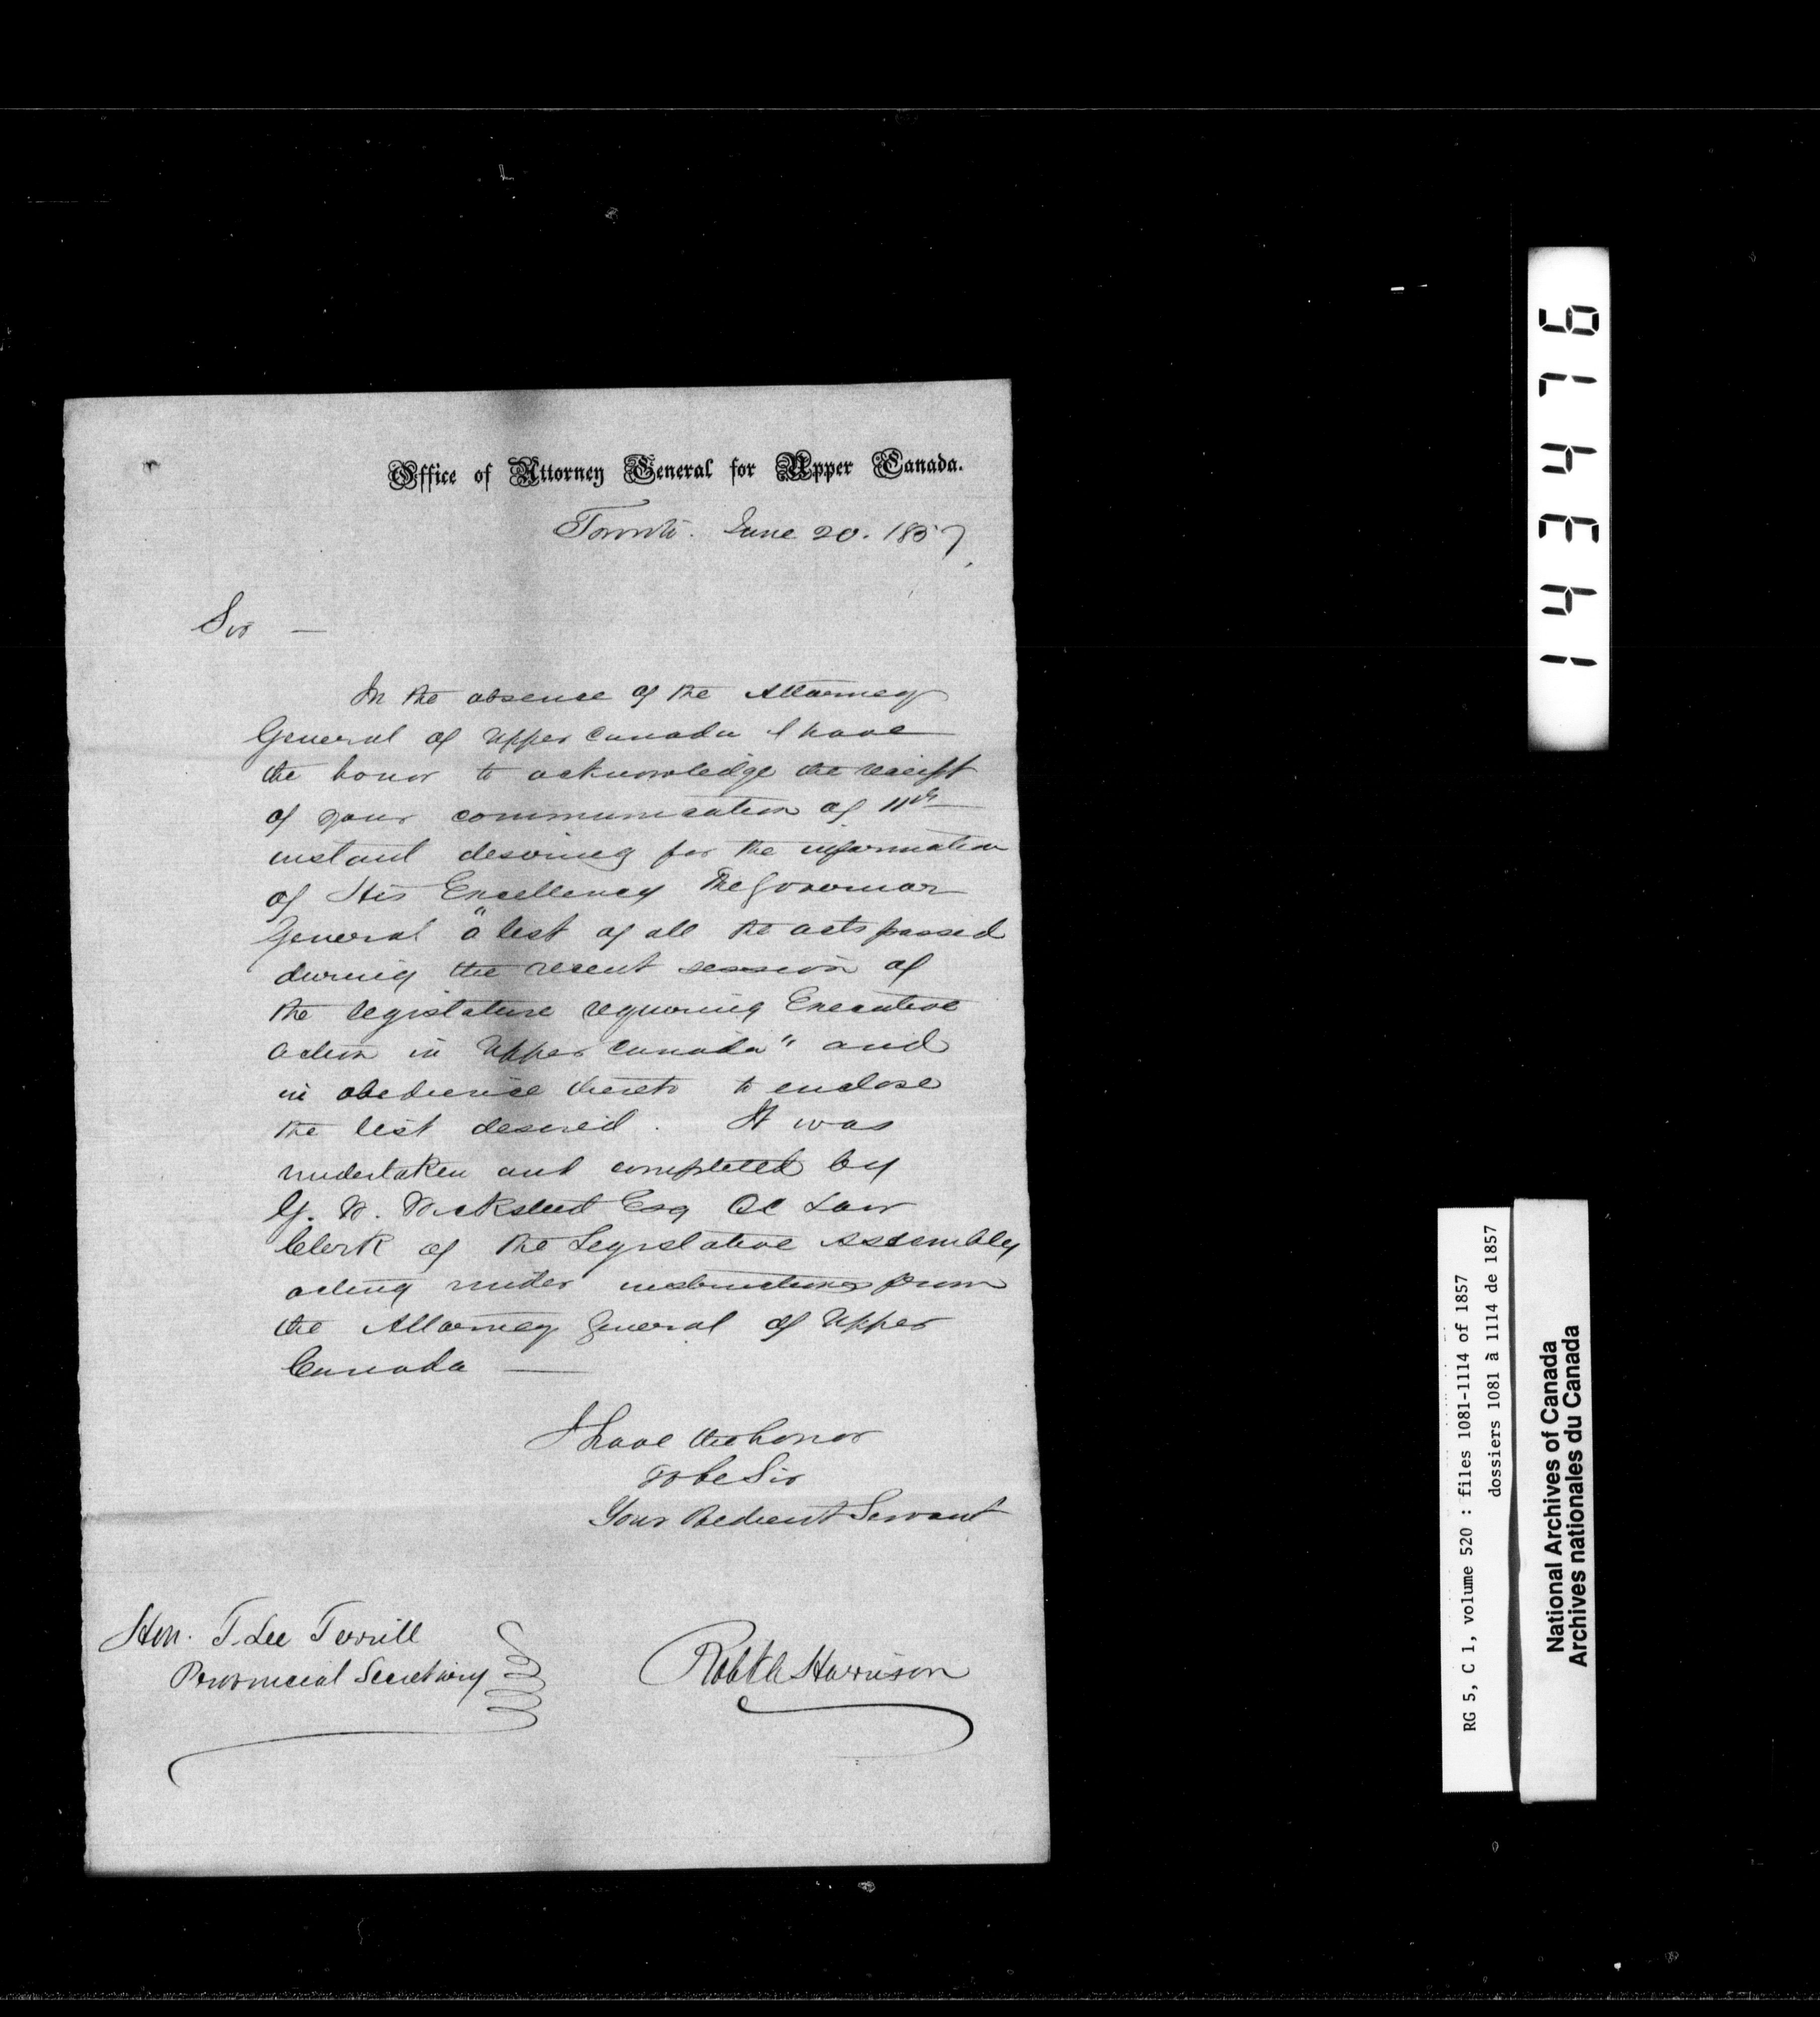 Office of Attorney General for Upper Canada.
Toronto. June 20. 1857
Sir —
In the absence of the Attorney
General of Upper Canada I have
the honor to acknowledge the receipt
of your communication of 11th
instant desiring for the information
of His Excellency the Governor
General "a list of all the acts passed
during the recent session of
the legislature requiring Executive
action in Upper Canada" and
in obedience thereto to enclose
the list desired. It was
undertaken and completed by
G. W. Wicksteed Esq QC Law
Clerk of the Legislative Assembly
acting under instructions from
the Attorney General of Upper
Canada —
I have the honor
to be Sir
Your Obedient Servant
Hon. T. Lee Terrill
Provincial Secretary
Robt A Harrison
143476
RG 5, C 1, volume 520 : files 1081-1114 of 1857
dossiers 1081 à 1114 de 1857
National Archives of Canada
Archives nationales du Canada